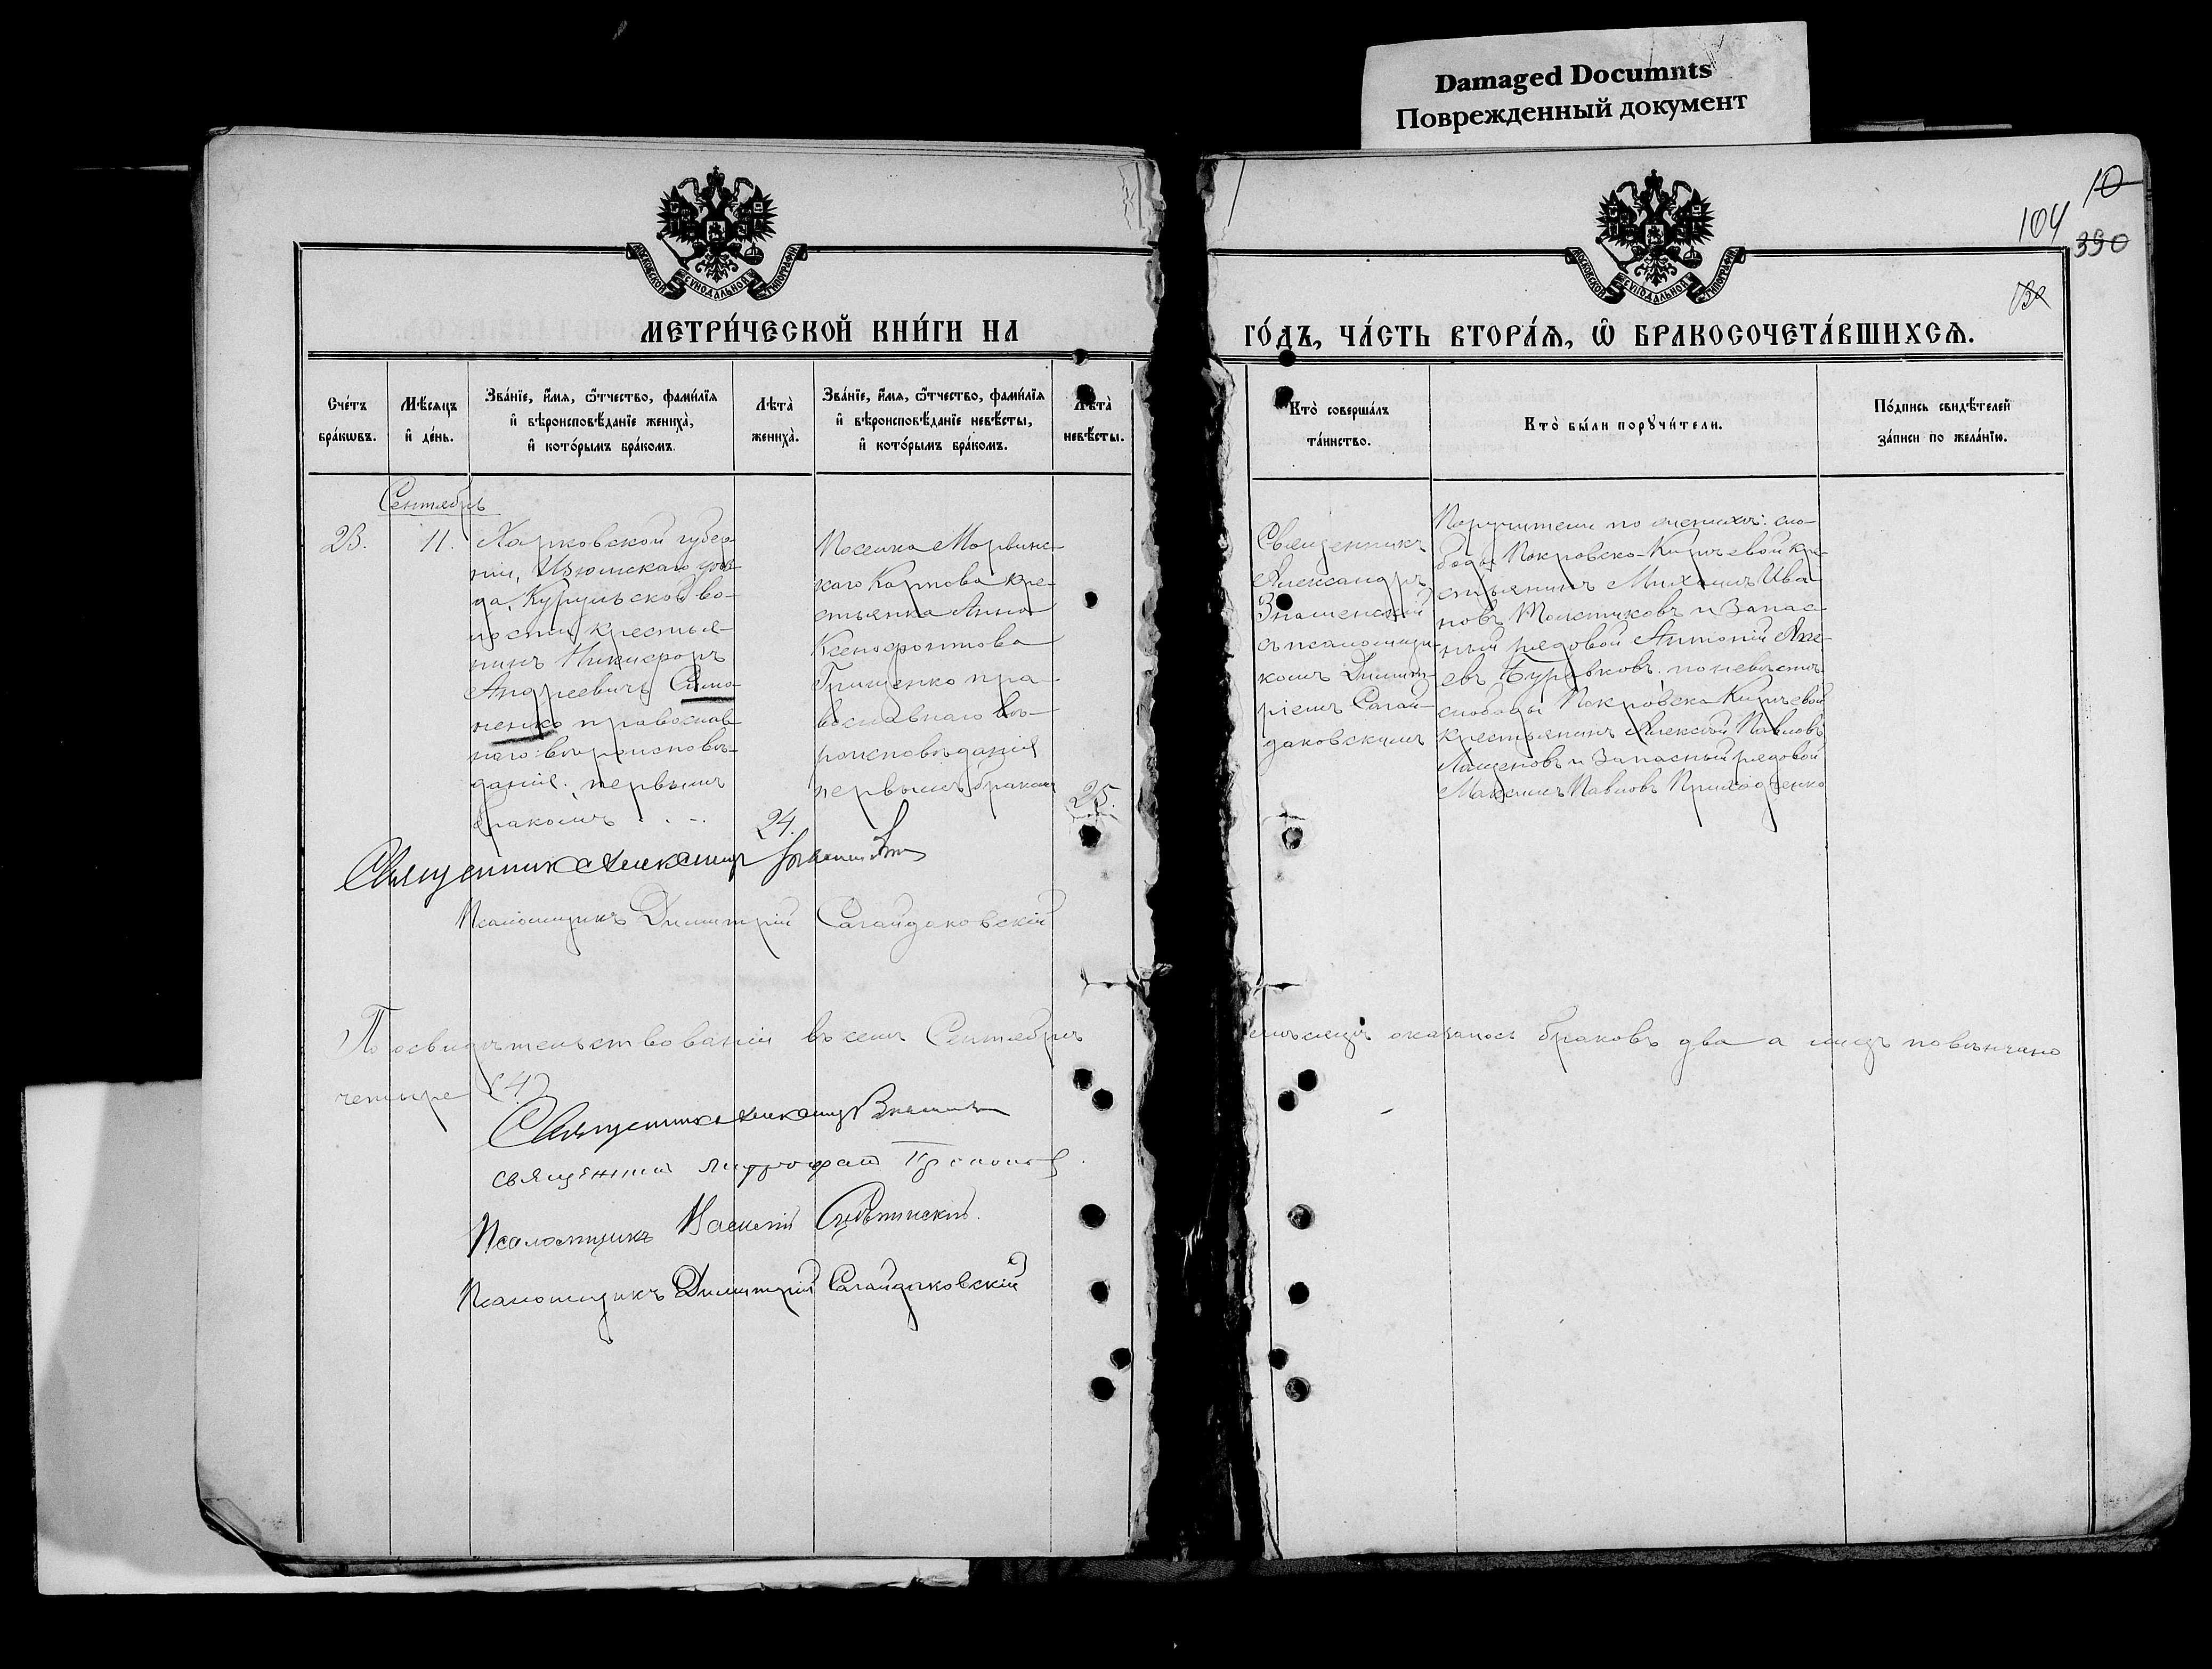 Damaged Documnts
Поврежденный документ
10
104
390
МОСКОВСКОЙ СУНОДАЛЬНОЙ ТИПОГРАФІИ
МОСКОВСКОЙ СУНОДАЛЬНОЙ ТИПОГРАФІИ
МЕТРИ́ЧЕСКОЙ КНИ́ГИ НА
ГО́ДЪ, ЧА́СТЬ ВТОРА́Я, Ѽ БРАКОСОЧЕТА́ВШИХСЯ.
Сче́тъ
бра́кѡвъ.
Мѣ́сяцъ
и҆ де́нь.
Зва́нїе, и҆́мя, ѻ҆́тчество, фами́лїя
и҆ вѣроисповѣ́данїе жениха̀,
и҆ кото́рымъ бра́комъ.
Лѣта̀
жениха̀.
Зва́нїе, и҆́мя, ѻ҆́тчество, фами́лїя
и҆ вѣроисповѣ́данїе невѣ́сты,
и҆ кото́рымъ бра́комъ.
Лѣта̀
невѣ́сты.
Кто̀ соверша́лъ
та́инство.
Кто̀ бы́ли порꙋчи́тели.
По́дпись свидѣ́телей
за́писи по жела́нїю.
Сентябрь
23.
11.
Харковской губер-
ніи, Изюмскаго уѣз-
да, Курульской во-
лости крестья-
нинъ Никифоръ
Андреевичъ Симо-
ненко православ-
наго вѣроисповѣ-
данія, первымъ
бракомъ
24.
Поселка
каго Карпова кре-
стьянка Анна
Ксенофонтова
Грищенко пра-
вославнаго вѣ-
роисповѣданія
первымъ бракомъ
25.
Священникъ
Александръ
Знаменскій
съ псаломщи-
комъ Димит-
ріемъ Сагай-
даковскимъ
Поручители по женихѣ: сло-
боды Покровско-Киреевой кре-
стьянинъ Михаилъ Ива-
новъ Толстиковъ и Запас-
ный рядовой Антоній
евъ по невѣстѣ:
слободы Покровско Киреевой
крестьянинъ Алексѣй Павловъ
и Запасный рядовой
Максимъ Павловъ Приходченко
Священникъ Александръ Знаменскій
Псаломщикъ Димитрій Сагайдаковскій
По освидѣтельствованіи въ семъ Сентябрѣ
мѣсяцѣ оказалось браковъ два а лицъ повѣнчано
четыре (4)
Священникъ Александръ Знаменскій
Священникъ Митрофанъ
Псаломщикъ Василій
Псаломщикъ Димитрій Сагайдаковскій